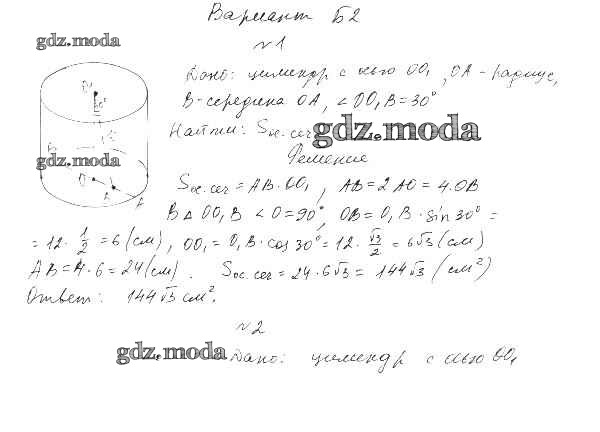 Вариант Б2
gdz.moda
№1
Дано: цилиндр с осью OO₁, OA - радиус,
B - середина OA, ∠OO₁B = 30°
Найти: Sос.сеч
gdz.moda
gdz.moda
Решение
Sос.сеч = AB · OO₁, AB = 2AO = 4·OB
В Δ OO₁B ∠O = 90°, OB = O₁B · sin 30° =
= 12 · 1/2 = 6 (см), OO₁ = O₁B · cos 30° = 12 · √3/2 = 6√3 (см)
AB = 4 · 6 = 24 (см). Sос.сеч = 24 · 6√3 = 144√3 (см²)
Ответ: 144√3 см².
№2
gdz.moda
Дано: цилиндр с осью OO₁